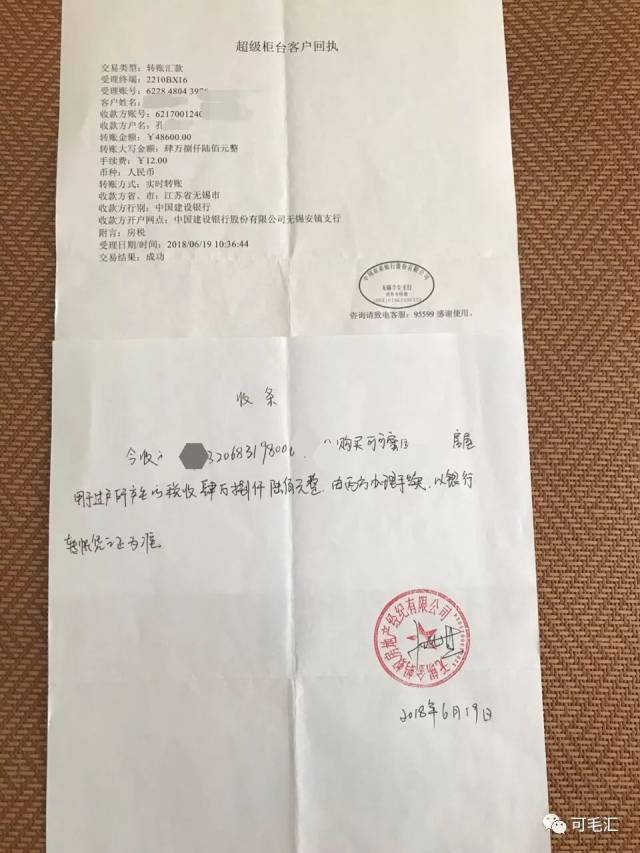 超级柜台客户回执
交易类型：转账汇款
受理终端：2210BX16
受理账号：6228 4804 39
客户姓名：
收款方账号：6217001240
收款方户名：孔
转账金额：￥48600.00
转账大写金额：肆万捌仟陆佰元整
手续费：￥12.00
币种：人民币
转账方式：实时转账
收款方省、市：江苏省无锡市
收款方行别：中国建设银行
收款方开户网点：中国建设银行股份有限公司无锡安镇支行
附言：房税
受理日期/时间：2018/06/19 10:36:44
交易结果：成功
中国农业银行股份有限公司
咨询请致电客服：95599 感谢使用。
收条
今收 32068319800 购买 房屋
用于过户所产生的税收肆万捌仟陆佰元整.由丙方办理手续.以银行
转帐凭证为准。
无锡金蚂蚁房地产经纪有限公司
2018年6月19日
可毛汇